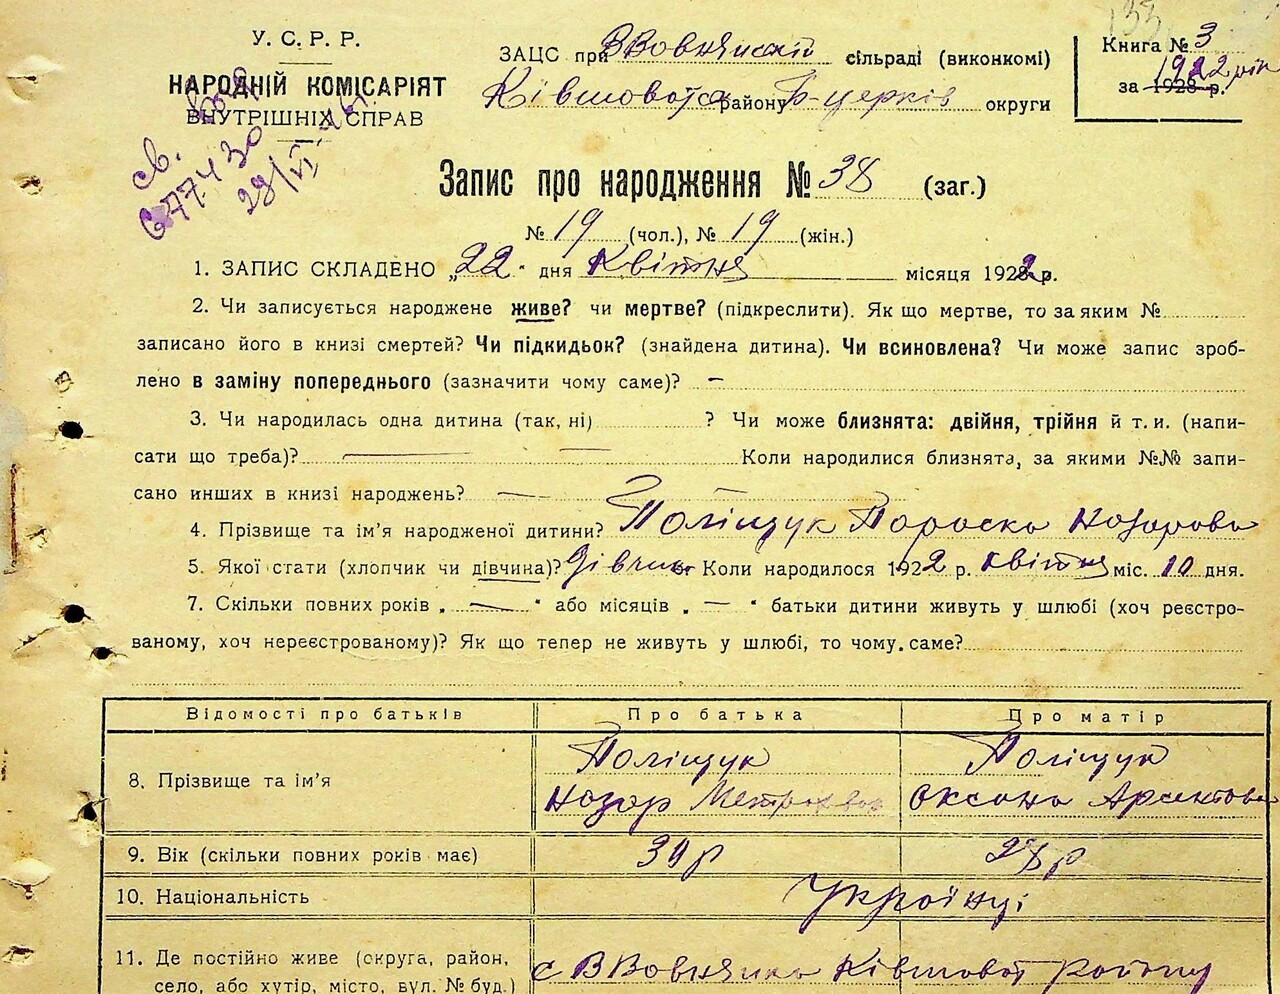 133
У. С. Р. Р.
НАРОДНІЙ КОМІСАРІЯТ
ВНУТРІШНІХ СПРАВ
ЗАЦС при ВВовнянській сільраді (виконкомі)
Ківшоватс району Б-церків округи
Книга № 3
за 1928 р. 1922 рік
св.
677430
28/VI
Запис про народження № 38 (заг.)
№ 19 (чол.), № 19 (жін.)
1. ЗАПИС СКЛАДЕНО „22" дня Квітня місяця 1922 р.
2. Чи записується народжене живе? чи мертве? (підкреслити). Як що мертве, то за яким №
записано його в книзі смертей? Чи підкидьок? (знайдена дитина). Чи всиновлена? Чи може запис зроб-
лено в заміну попереднього (зазначити чому саме)? —
3. Чи народилась одна дитина (так, ні) ? Чи може близнята: двійня, трійня й т. и. (напи-
сати що треба)? — — Коли народилися близнята, за якими №№ запи-
сано инших в книзі народжень? —
4. Прізвище та ім'я народженої дитини? Поліщук Пораска Назарова
5. Якої стати (хлопчик чи дівчина)? Дівчина Коли народилося 1922 р. квітня міс. 10 дня.
7. Скільки повних років „ — " або місяців „ — " батьки дитини живуть у шлюбі (хоч реєстро-
ваному, хоч нереєстрованому)? Як що тепер не живуть у шлюбі, то чому. саме?
Відомості про батьків Про батька Про матір
8. Прізвище та ім'я Поліщук Назар Поліщук Оксана
9. Вік (скільки повних років має) 34 р 28 р
10. Національність Українці
11. Де постійно живе (округа, район,
село, або хутір, місто, вул. № буд.) с ВВовнянка Ківшоват району